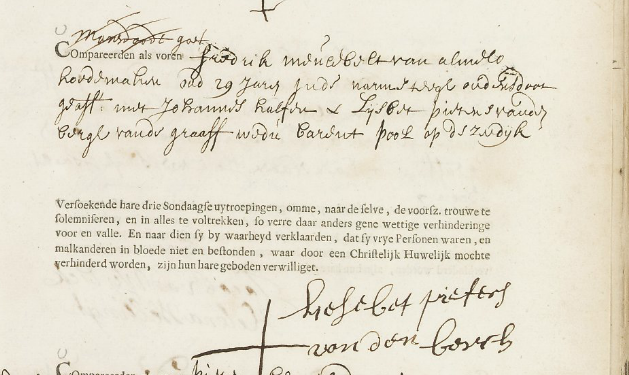 Compareerden als voren fredrik meulebelt van almelo
hoedemaker oud 29 Jaer inde ouders doot
geasst: met Johannes & Lijsbet pieters vanden
bergh vande graaff wedu barent pool op de zeedijk
Versoekende hare drie Sondaagse uytroepingen, omme, naar de selve, de voorsz. trouwe te
solemniseren, en in alles te voltrekken, so verre daar anders gene wettige verhinderinge
voor en valle. En naar dien sy by waarheyd verklaarden, dat sy vrye Personen waren, en
malkanderen in bloede niet en bestonden, waar door een Christelijk Huwelijk mochte
verhinderd worden, zijn hun hare geboden verwilliget.
pieters
van den berch
Compareerden